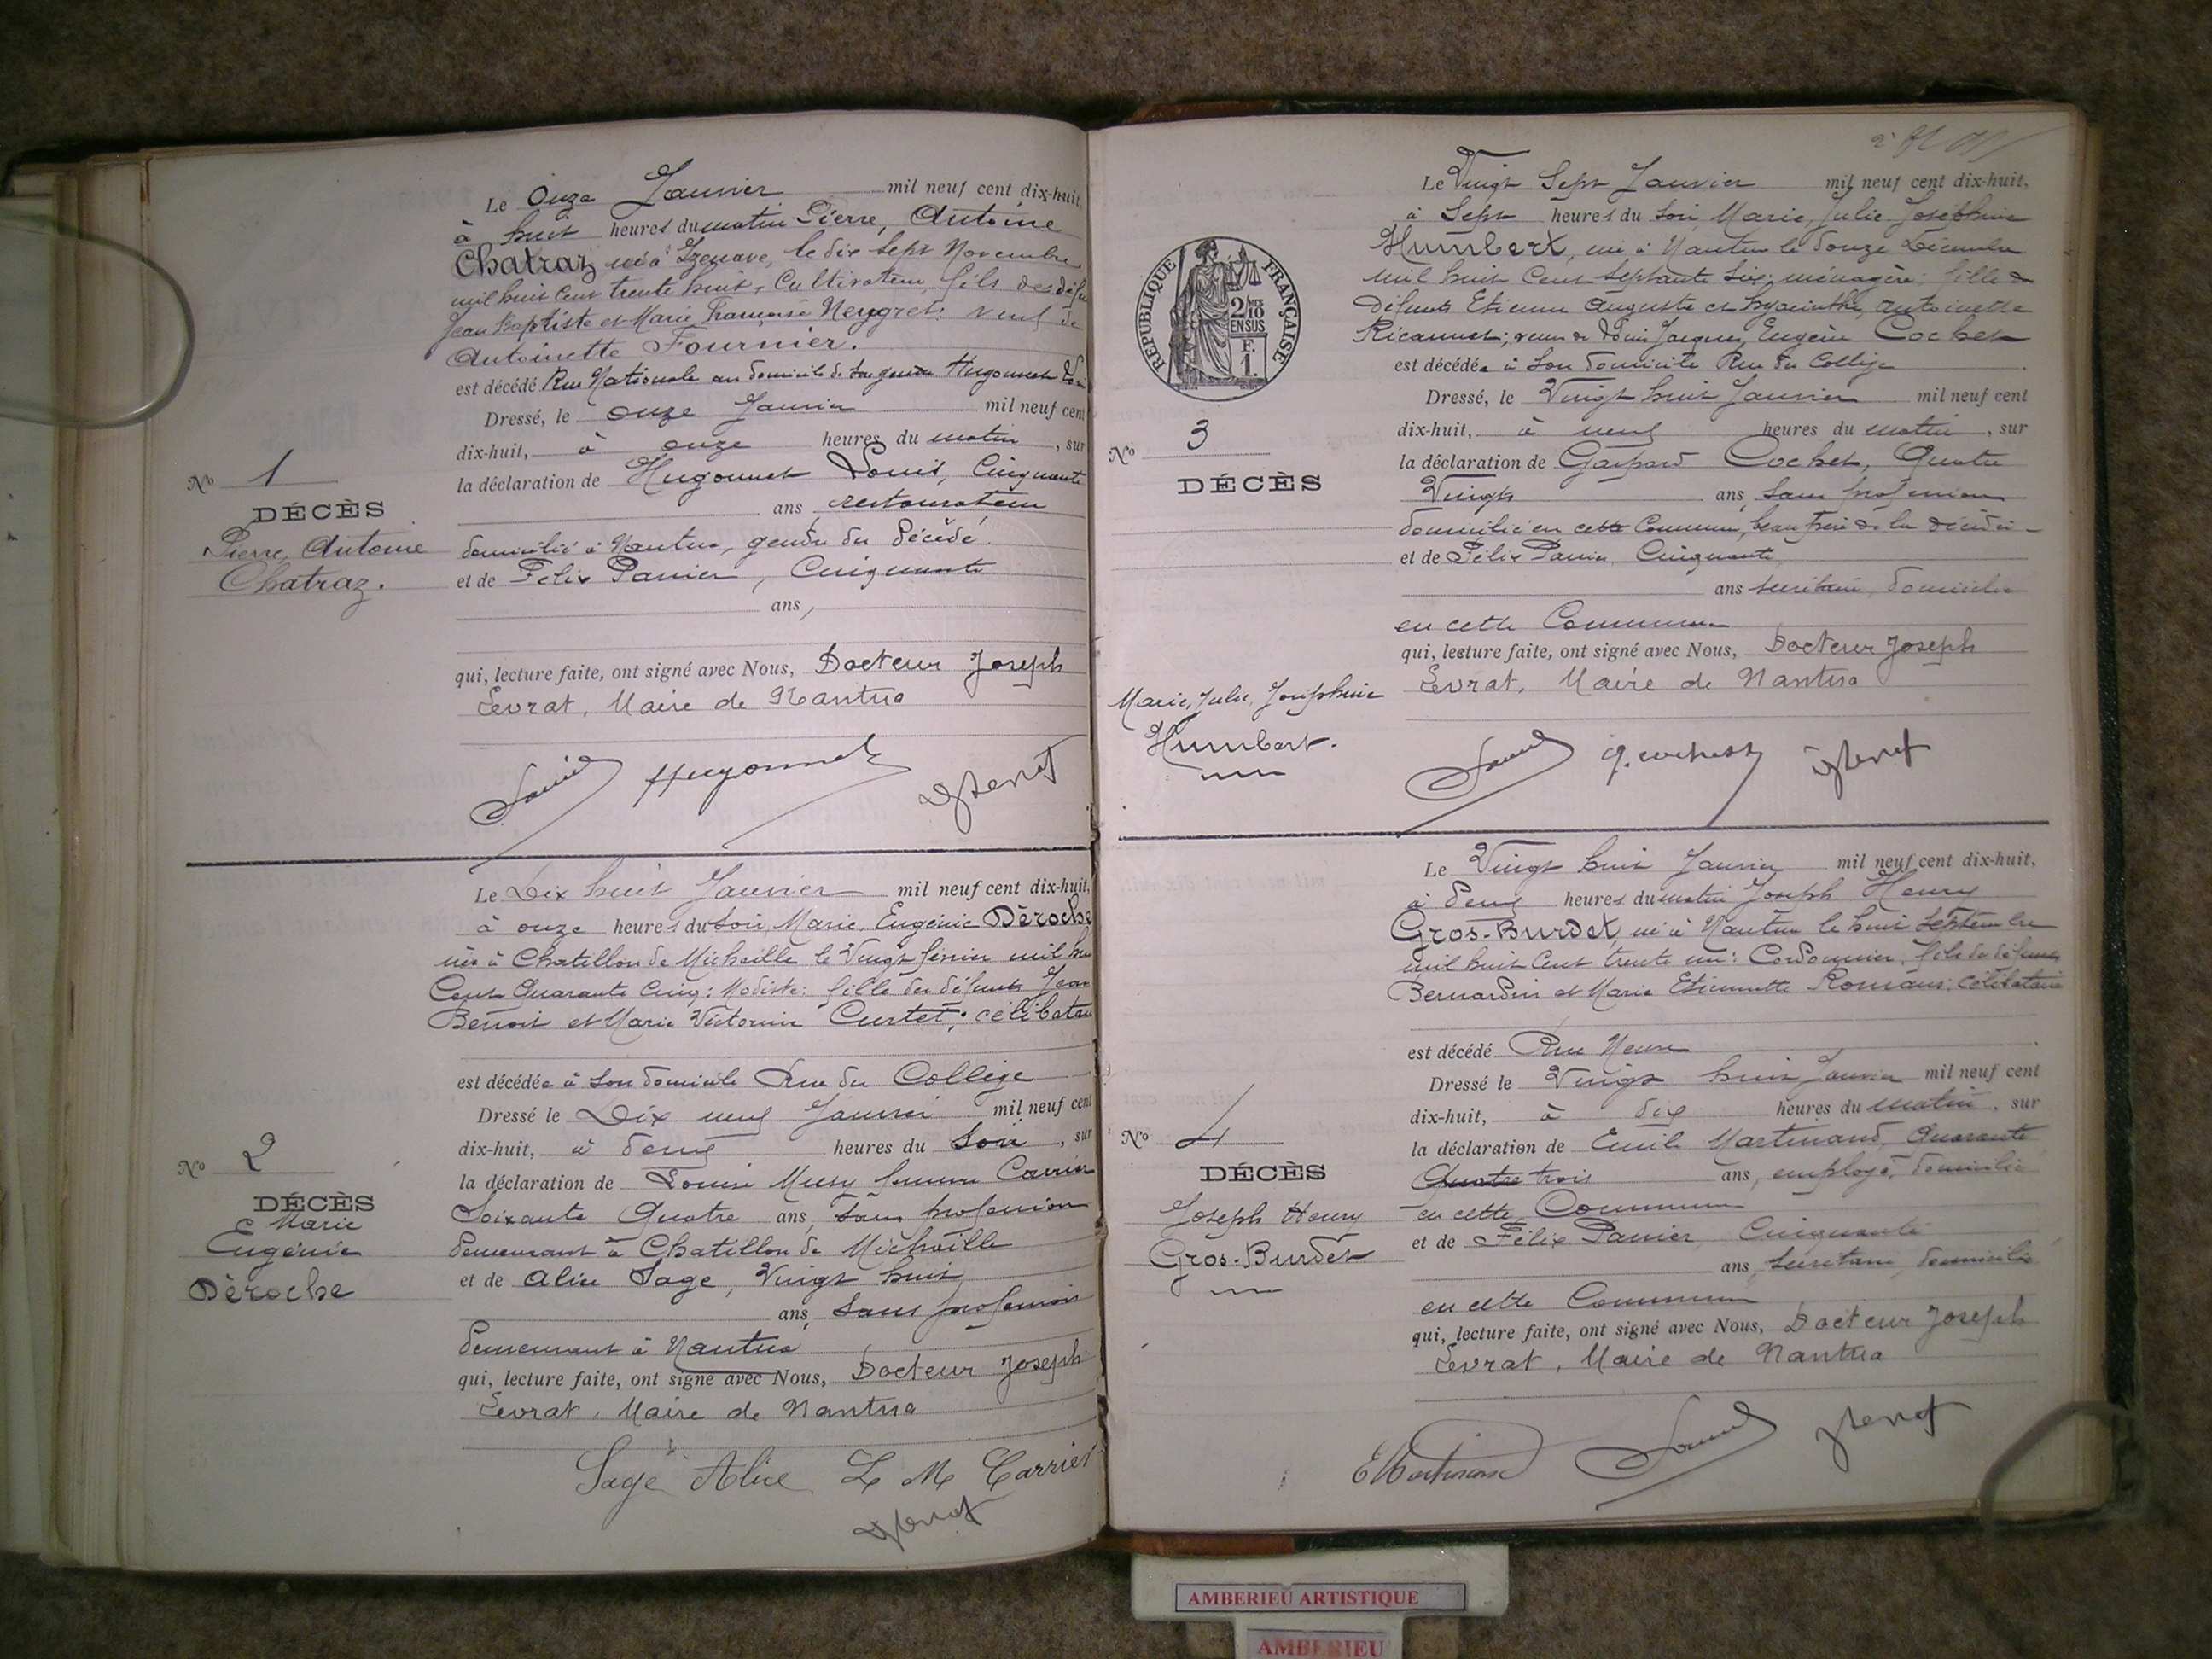 Le Onze Janvier mil neuf cent dix-huit,
à huit heures du matin Pierre, Antoine
Chatraz né à Izenave, le dix sept Novembre
mil huit cent trente huit, Cultivateur, fils des défu
Jean Baptiste et Marie Françoise Neyret: veuf de
Antoinette Fournier.
est décédé Rue Nationale au domicile de Hugonnet
Dressé, le onze Janvier mil neuf cent
dix-huit, à onze heures du matin, sur
la déclaration de Hugonnet Louis, Cinquante
ans restaurateur
domicilié à Nantua, gendre du Décédé.
et de Félix Panier, Cinquante
ans,
qui, lecture faite, ont signé avec Nous, Docteur Joseph
Levrat, Maire de Nantua
Hugonnet
No 1
DÉCÈS
Pierre, Antoine
Chatraz.
Le Dix huit Janvier mil neuf cent dix-huit,
à onze heures du soir, Marie, Eugénie Dèroche
née à Chatillon de Michaille le Vingt février mil hu
Cent Quarante Cinq: Modiste: fille des défunts Jean
Benoit et Marie Victorine Curtet; célibatai
est décédée à son domicile Rue du Collège
Dressé le Dix neuf Janvier mil neuf cent
dix-huit, à deux heures du Soir, sur
la déclaration de Louise femme Carrier
Soixante Quatre ans, sans profession
demeurant à Chatillon de Michaille
et de Alice Sage, Vingt huit
ans, sans profession
demeurant à Nantua
qui, lecture faite, ont signé avec Nous, Docteur Joseph
Levrat, Maire de Nantua
Sage Alice L M Carrier
No 2
DÉCÈS
Marie
Eugénie
Dèroche
Le Vingt Sept Janvier mil neuf cent dix-huit,
à Sept heures du soir, Marie, Julie Joséphine
Humbert, née à Nantua le douze Décembre
mil huit Cent Septante Six; ménagère; fille de
défunts Etienne Auguste et Hyacinthe, Antoinette
Ricannet; veuve de Louis Jacques, Eugène Cochet
est décédée à son domicile Rue du Collège
Dressé, le Vingt huit Janvier mil neuf cent
dix-huit, à neuf heures du matin, sur
la déclaration de Gaspard Cochet, Quatre
Vingts ans, sans profession
domicilié en cette Commune, beau frère de la décédée
et de Félix Panier, Cinquante
ans secrétaire, domicilié
en cette Commune
qui, lecture faite, ont signé avec Nous, Docteur Joseph
Levrat, Maire de Nantua
G. cochet
RÉPUBLIQUE FRANÇAISE
2/10
EN SUS
F.
1.
No 3
DÉCÈS
Marie, Julie, Joséphine
Humbert.
Le Vingt huit Janvier mil neuf cent dix-huit,
à deux heures du matin Joseph Henry
Gros-Burdet, né à Nantua le huit Septembre
mil huit Cent trente un: Cordonnier, fils de défunts
Bernardin et Marie Etiennette Romans; célibataire
est décédé Rue Neuve
Dressé le Vingt huit Janvier mil neuf cent
dix-huit, à dix heures du matin, sur
la déclaration de Emile Martinand, Quarante
Quatre trois ans, employé, domicilié
en cette Commune
et de Félix Panier Cinquante
ans, secrétaire, domicilié
en cette Commune
qui, lecture faite, ont signé avec Nous, Docteur Joseph
Levrat, Maire de Nantua
E Martinand
No 4
DÉCÈS
Joseph Henry
Gros-Burdet
AMBERIEU ARTISTIQUE
AMBERIEU